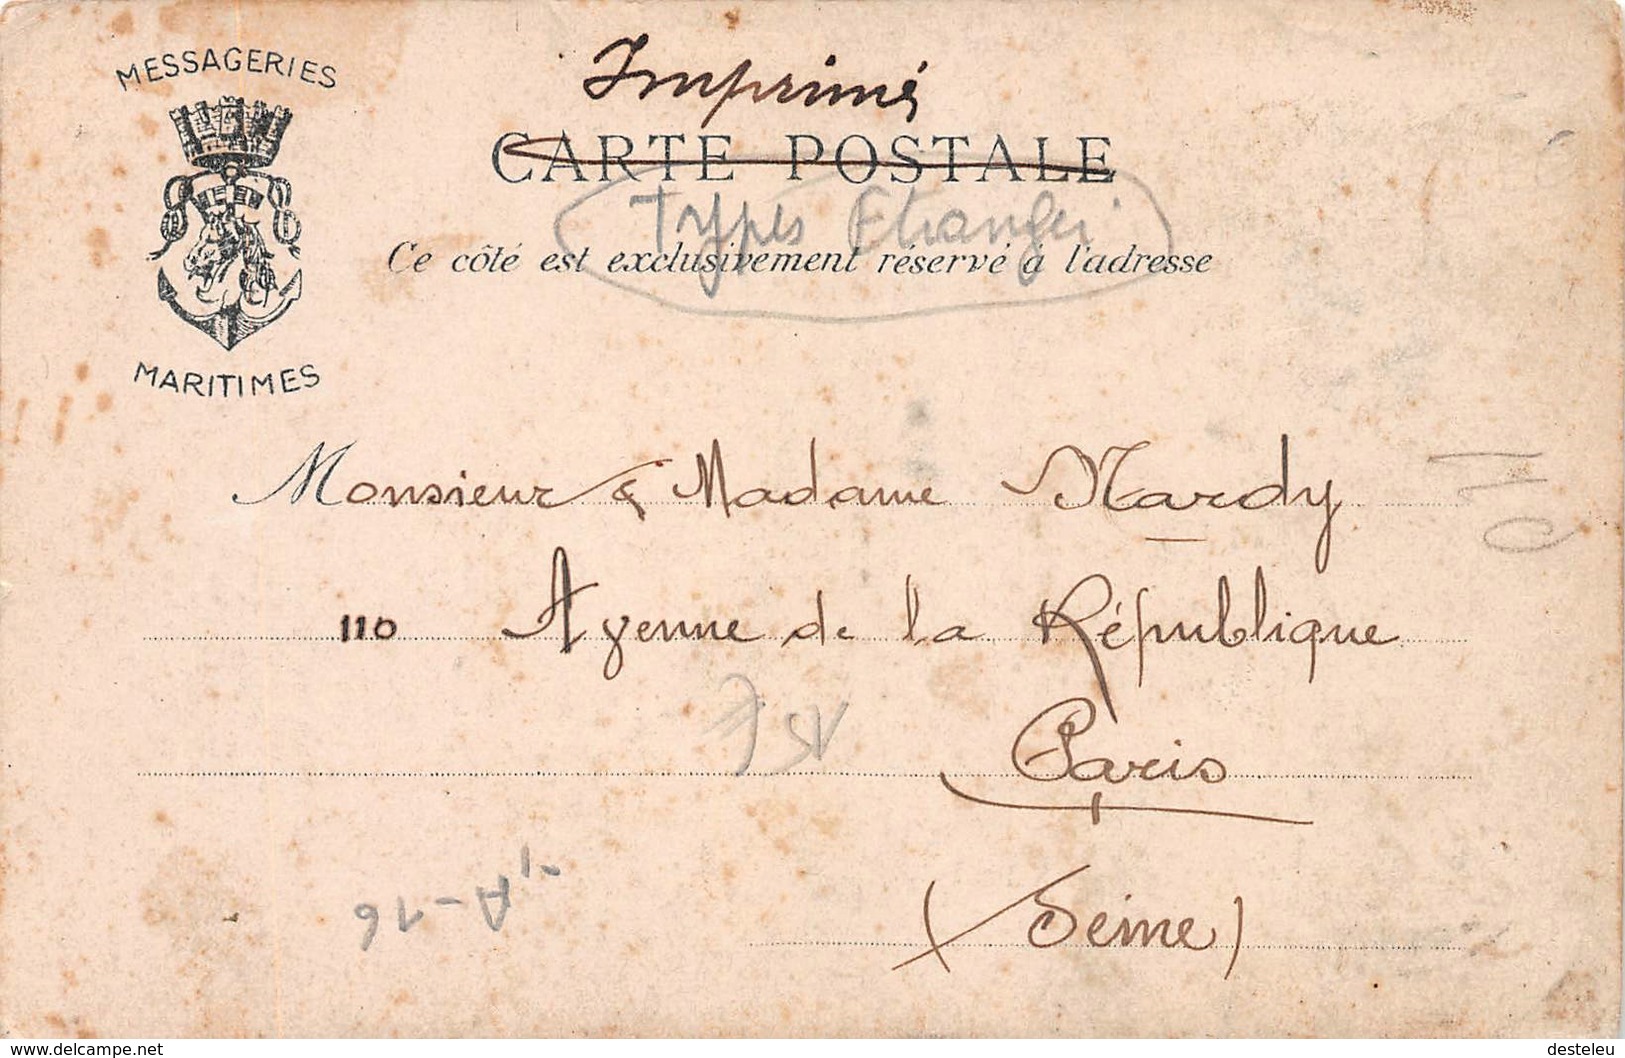 MESSAGERIES
MARITIMES
Imprimé
CARTE POSTALE
Types Etranger
Ce côté est exclusivement réservé à l'adresse
Monsieur & Madame Nardy
110 Avenue de la République
Paris
(Seine)
www.delcampe.net
desteleu